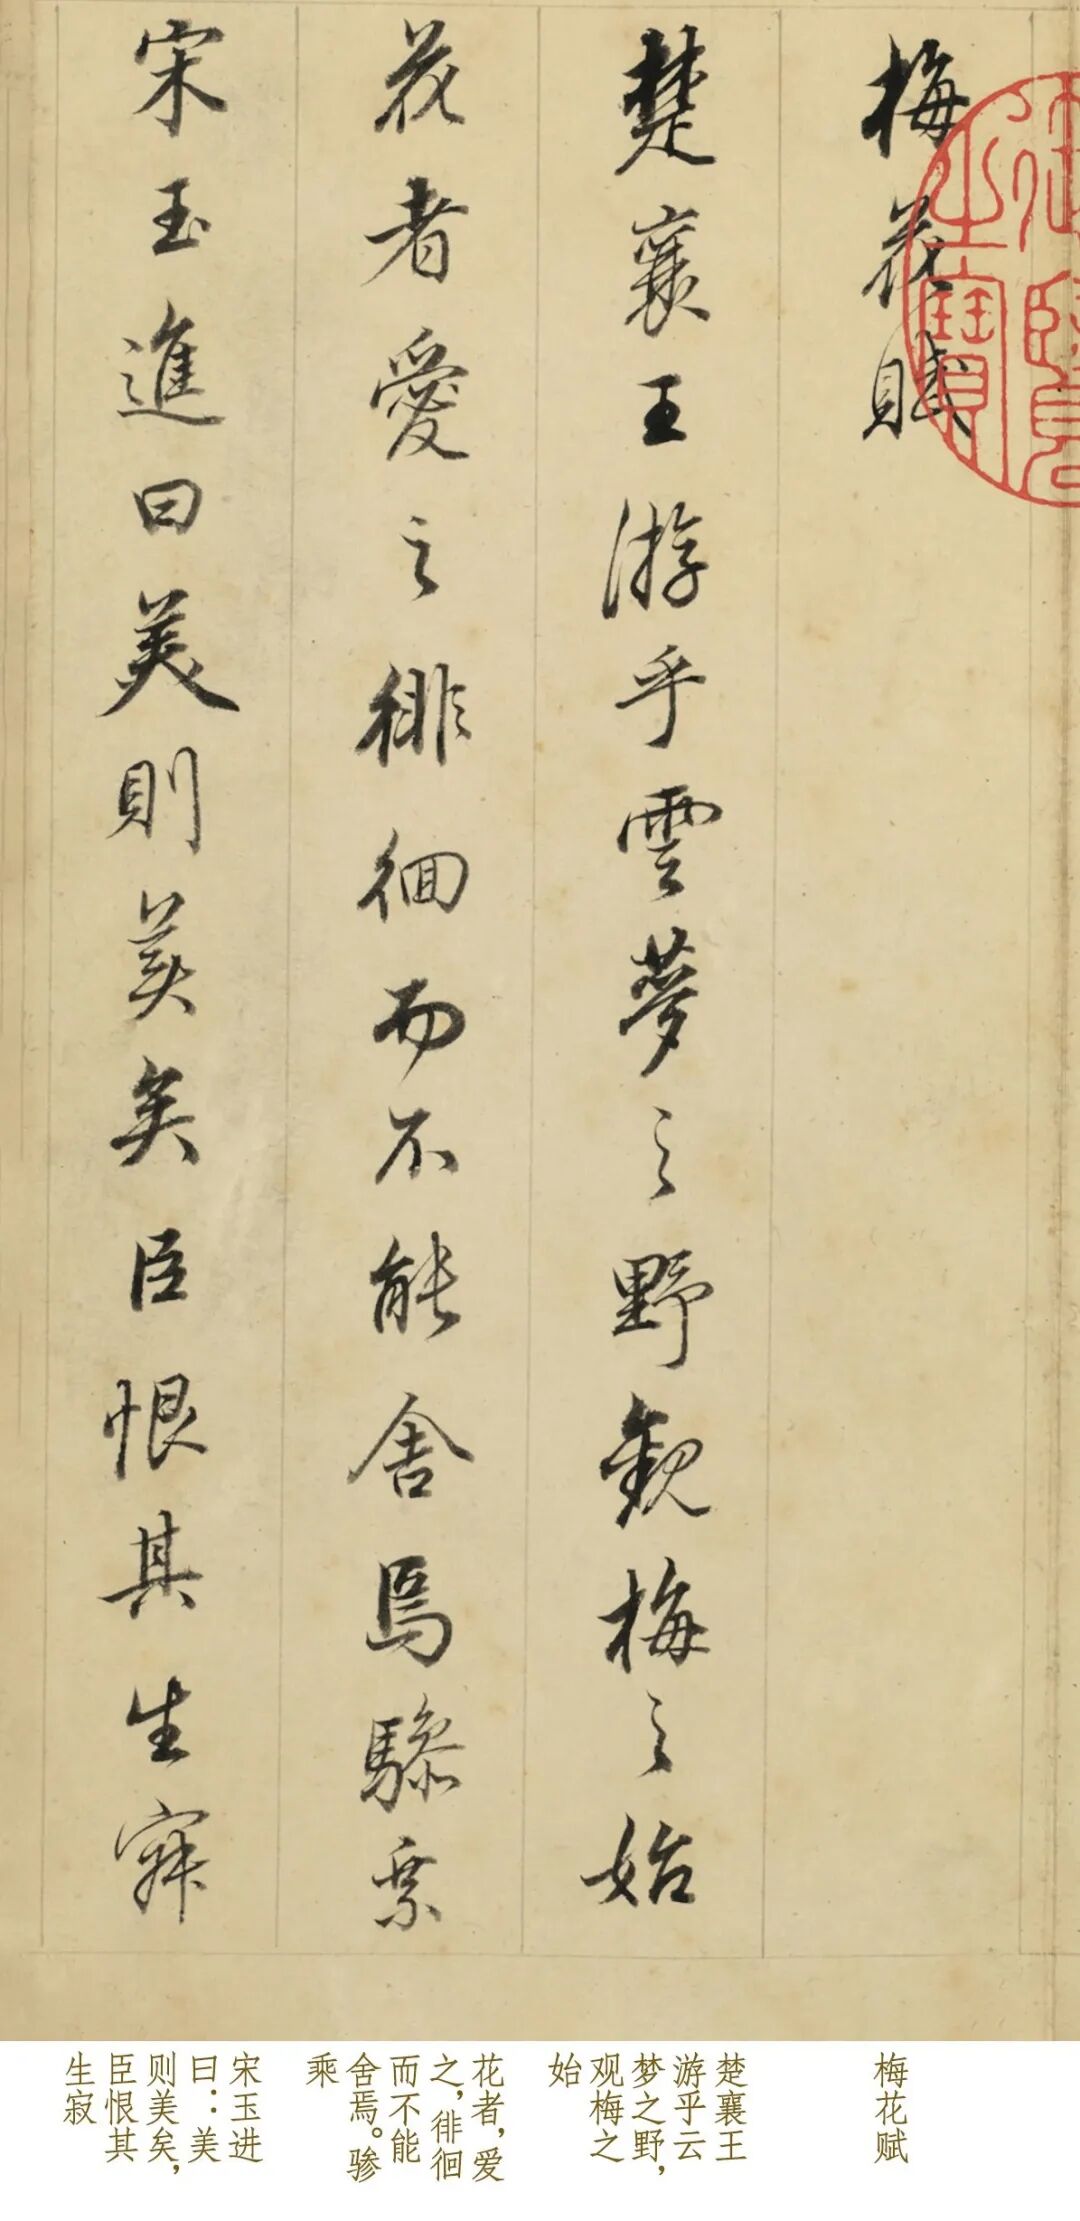 梅花賦
楚襄王游乎雲夢之野觀梅之始
花者愛之徘徊而不能舍焉驂乘
宋玉進曰美則美矣臣恨其生寂
御覽之寶
梅花赋
楚襄王
游乎云
梦之野，
观梅之
始
花者，爱
之，徘徊
而不能
舍焉。骖
乘
宋玉进
曰：美
则美矣，
臣恨其
生寂